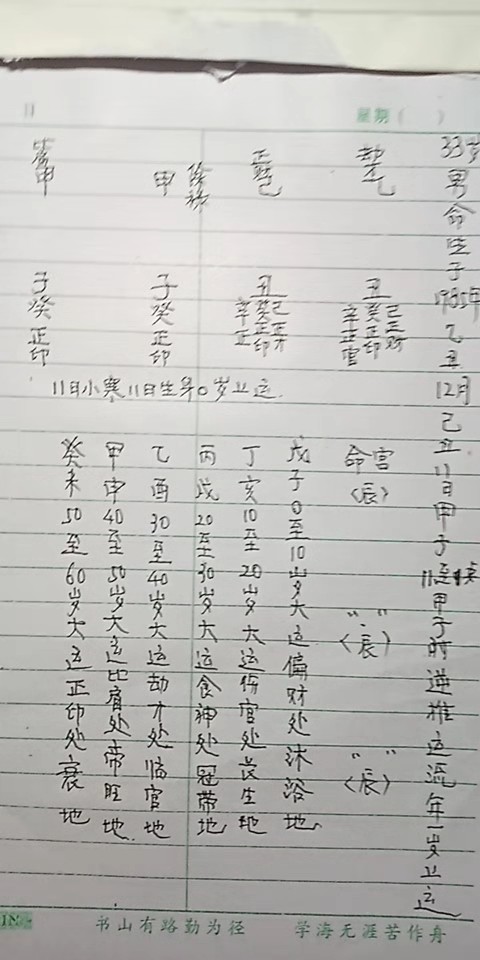 星期（ ）
33岁男命生于1985年乙丑12月己丑11日甲子11至1点甲子时逆推运流年一岁上运
劫才乙
正财己
甲
甲
丑
己正财
癸正印
辛正官
丑
己正才
癸正印
辛正
子癸正印
子癸正印
11日小寒11日生年0岁上运
命宫〈辰〉
〈辰〉
〈辰〉
戊子0至10岁大运偏财处沐浴地
丁亥10至20岁大运伤官处长生地
丙戌20至30岁大运食神处冠带地
乙酉30至40岁大运劫才处临官地
甲申40至50岁大运比肩处帝旺地
癸未50至60岁大运正印处衰地
书山有路勤为径 学海无涯苦作舟